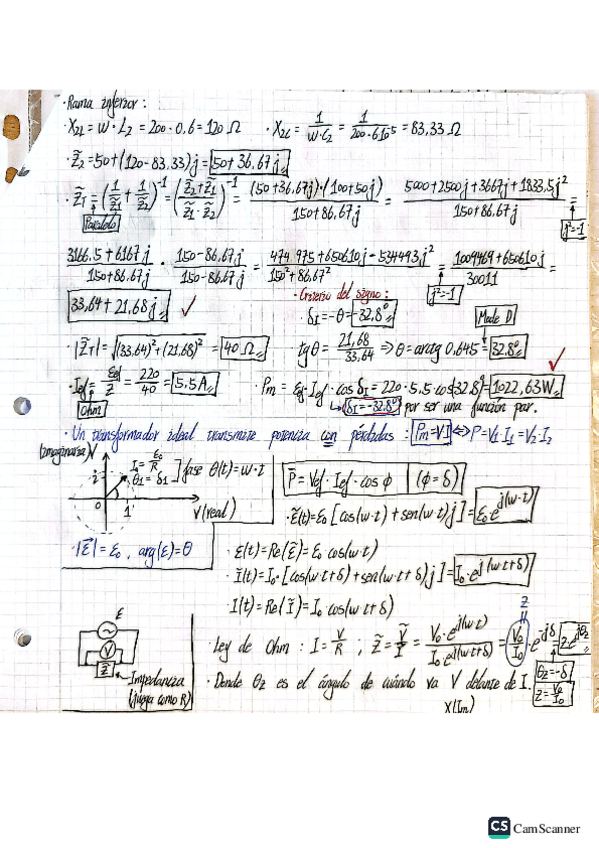 · Rama inferior:
X2L = W · L2 = 200 · 0,6 = 120 Ω · X2C = 1/(W·C2) = 1/(200·6·10^-5) = 83,33 Ω
· Z̃2 = 50 + (120 - 83.33)j = 50 + 36.67j
· Z̃T = (1/Z̃1 + 1/Z̃2)^-1 = ((Z̃2 + Z̃1)/(Z̃1 · Z̃2))^-1 = (50 + 36,67j) · (100 + 50j)/(150 + 86,67j) = (5000 + 2500j + 3667j + 1833,5j²)/(150 + 86.67j) =
Paralelo
j² = -1
(3166.5 + 6167j)/(150 + 86.67j) · (150 - 86.67j)/(150 - 86.67j) = (474.975 + 650610j - 534493j²)/(150² + 86.67²) = (1009469 + 650610j)/30011 =
j² = -1
33,64 + 21,68j ✓
· Criterio del signo:
· δI = -θ = -32.8°
Mode D
· |Z̃T| = √((33,64)² + (21,68)²) = 40 Ω
· tg θ = 21,68/33.64 ⇒ θ = arctg 0,645 = 32.8°
· Ief = εef/Z = 220/40 = 5,5 A · Pm = εef · Ief · cos δI = 220 · 5.5 · cos(32.8°) = 1022,63 W
Ohm
↳ δI = -32.8° por ser una función par.
· Un transformador ideal transmite potencia con pérdidas: Pm = VI ⇔ P = V1 · I1 = V2 · I2
(imaginaria) V
i
I0 = ε0/R
θ1 = δ1
] fase θ(t) = w · t
1
V (real)
P̄ = Vef · Ief · cos ϕ | (ϕ = δ)
· ε̃(t) = ε0 [cos(w·t) + sen(w·t)j] = ε0 e^j(w·t)
· |ε̃| = ε0, arg(ε) = θ
· ε(t) = Re(ε̃) = ε0 cos(w·t)
· Ĩ(t) = I0 · [cos(w·t + δ) + sen(w·t + δ)j] = I0 · e^j(w·t + δ)
· I(t) = Re(Ĩ) = I0 cos(w·t + δ)
ε
V
Z̃
Impedanzia
(juega como R)
Z
· Ley de Ohm: I = V/R ; Z̃ = Ṽ/Ĩ = V0 · e^j(w·t)/I0 e^j(w·t + δ) = V0/I0 · e^-jδ = Z e^jθz
· Donde θz es el ángulo de cuándo va V delante de I.
θz = -δ
Z = V0/I0
X(Im)
CS CamScanner